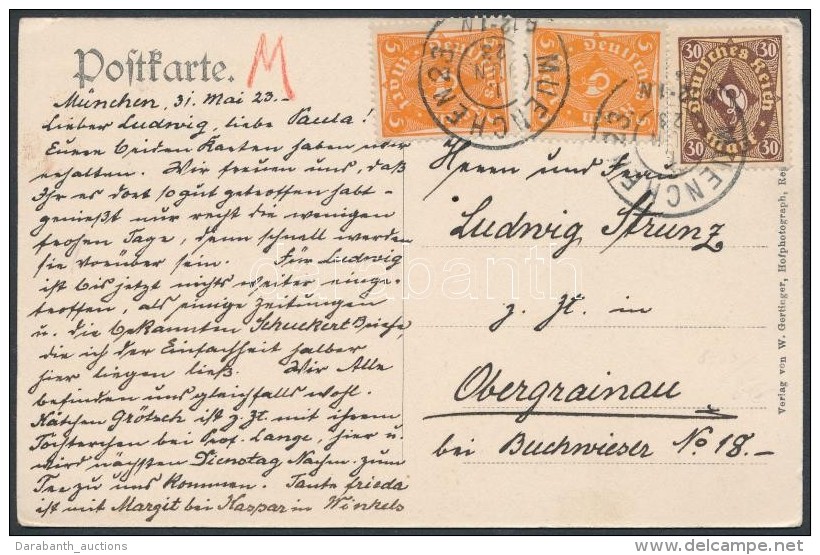 Postkarte.
M
München, 31. Mai 23.-
Lieber Ludwig, liebe Paula!
Eure beiden Karten haben wir
erhalten. Wir freuen uns, daß
Ihr es dort so gut getroffen habt -
genießt nur recht die wenigen
frohen Tage, denn schnell werden
sie vorüber sein. Für Ludwig
ist bis jetzt nichts weiter einge-
troffen, als einige Zeitungen
u. die bekannten Schuckert Briefe,
die ich der Einfachheit halber
hier liegen ließ. Wir Alle
befinden uns gleichfalls wohl.
Kätchen Grötsch ist z. Zt. mit ihrem
Töchterchen bei Prof. Lange, hier u.
wird nächsten Dienstag Nachm. zum
Tee zu uns kommen. Tante Frieda
ist mit Margit bei Kaspar in Winkels
5 5 Deutsches Reich 5 5
30 30 Deutsches Reich Mark 30 30
MUENCHEN 23
MUENCHEN 23
Herrn und Frau
Ludwig Strunz
z. Zt. in
Obergrainau
bei Buchwieser No 18.-
Verlag von W. Gerlieger, Hofphotograph,
darabanth
Darabanth_auctions
delcampe.net